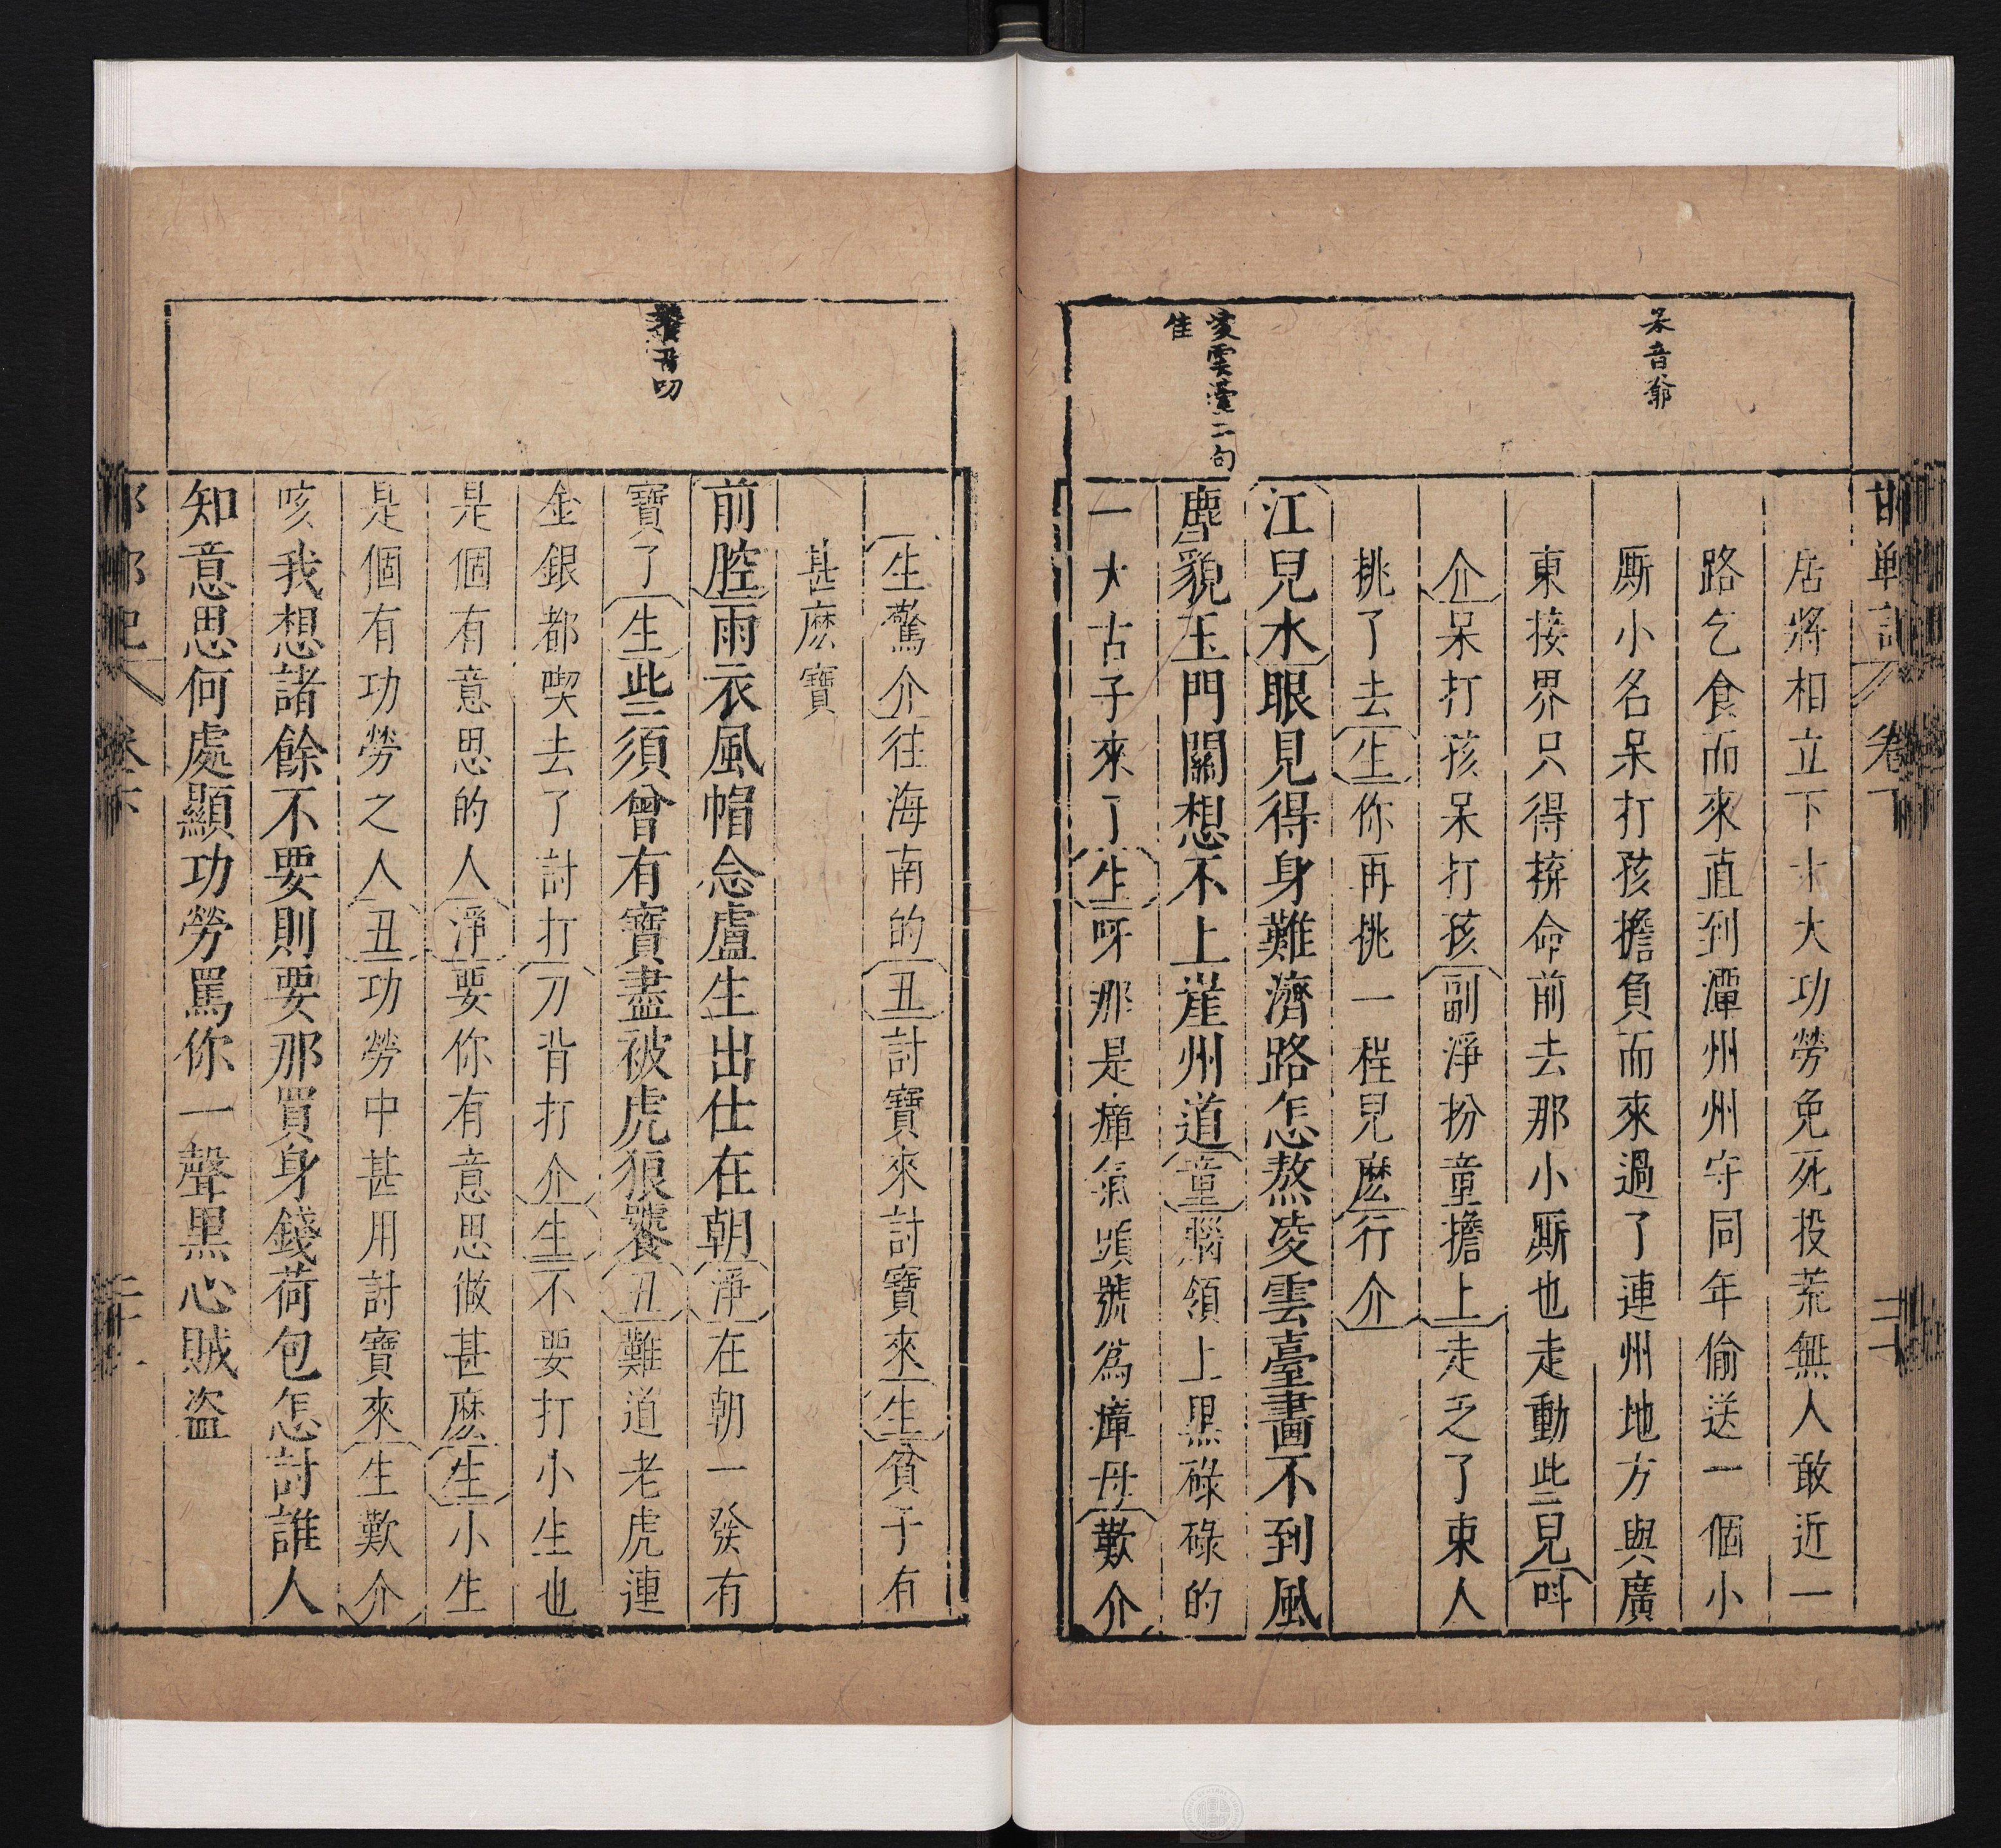 邯鄲記 卷下 二十
呆音爺
凌雲臺二句
佳
居將相立下大大功勞免死投荒無人敢近一
路乞食而來直到潭州州守同年偷送一個小
厮小名呆打孩擔負而來過了連州地方與廣
東接界只得捹命前去那小厮也走動些兒叫
介呆打孩呆打孩副淨扮童擔上走乏了東人
挑了去生你再挑一程兒麽行介
江兒水眼見得身難濟路怎熬凌雲臺畫不到風
塵貌玉門關想不上崖州道童腦領上黑碌碌的
一大古子來了生呀那是瘴氣頭號為瘴母歎介
音叨
生驚介往海南的丑討寶來討寶來生貧子有
甚麽寶
前腔雨衣風帽念盧生出仕在朝淨在朝一發有
寶了生些須曾有寶盡被虎狼饕丑難道老虎連
金銀都喫去了討打刀背打介生不要打小生也
是個有意思的人淨要你有意思做甚麽生小生
是個有功勞之人丑功勞中甚用討寶來生歎介
咳我想諸餘不要則要那買身錢荷包怎討誰人
知意思何處顯功勞罵你一聲黑心賊盜
邯鄲記 卷下 二十一